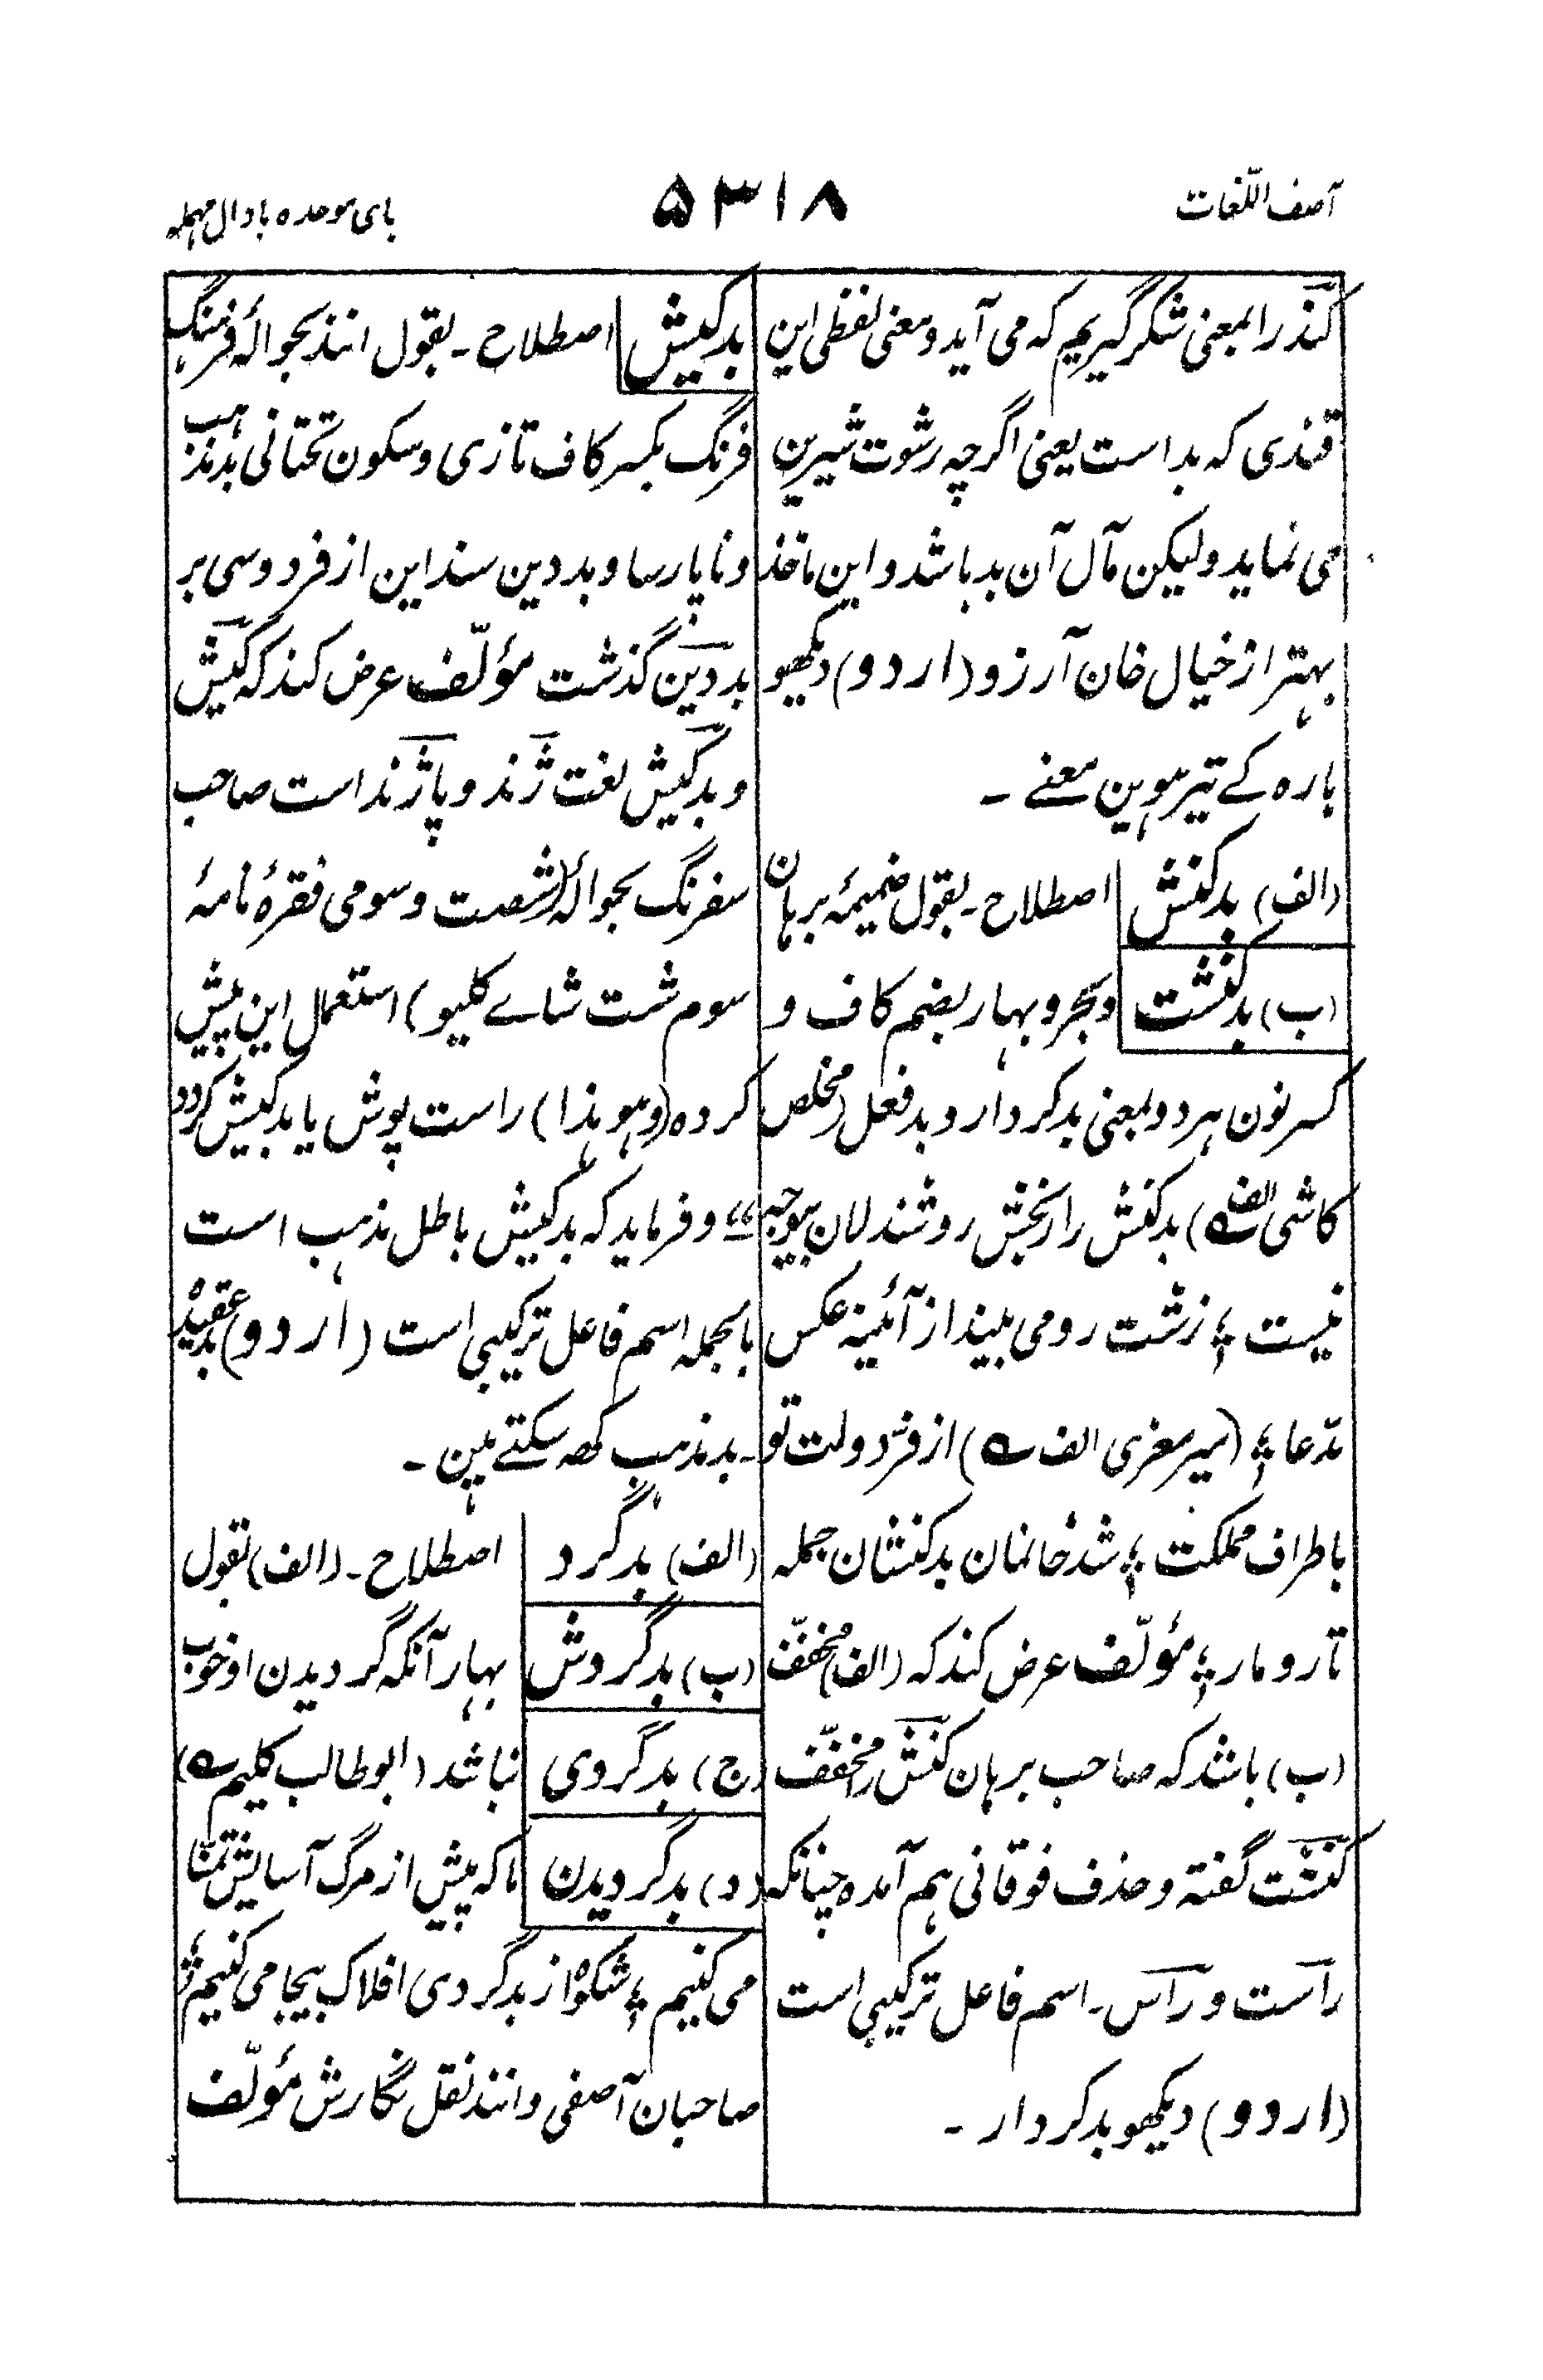 آصف اللّغات
۵۳۱۸
بای موحده با دال مهمله
کند را بمعنی شکر گیریم که می آید و معنی لفظی این
قندی که بد است یعنی اگرچه رشوت شیرین
می نماید ولیکن مآل آن بد باشد و این ماخذ
بهتر از خیال خان آرزو (اردو) دیکھو
باره کے تیرھوین معنے ۔
(الف) بدکنش اصطلاح ۔ بقول ضمیمهٔ برهان
(ب) بدکنشت و بحر و بهار بضم کاف و
کسر نون هر دو بمعنی بدکردار و بد فعل (مخلص
کاشی الف ے) بدکنش را رنجش روشندلان بیوجه
نیست ؛ زشت رو می بیند از آئینه عکس
مدّعا ؛ (میر معزی الف ے) از فرّ دولت تو
باطراف مملکت ؛ شد خانمان بدکنشان جمله
تار و مار ؛ مؤلّف عرض کند که (الف) مخفّف
(ب) باشد که صاحب برهان کنش را مخفّف
کنشت گفته و حذف فوقانی هم آمده چنانکه
راست و راس ۔ اسم فاعل ترکیبی است
(اردو) دیکھو بدکردار ۔
بدکیش اصطلاح ۔ بقول انند بحوالهٔ فرهنگ
فرنگ بکسر کاف تازی و سکون تحتانی بدمذهب
و ناپارسا و بد دین سند این از فردوسی بر
بد دین گذشت مؤلّف عرض کند که کیش
و بدکیش لغت ژند و پاژند است صاحب
سفرنگ بحوالهٔ (شصت و سومی فقرهٔ نامهٔ
سوم شت شاے کلیو) استعمال این پیش
کرده (و هو هذا) راست پوش یا بدکیش گردد
‟ و فرماید که بدکیش باطل مذهب است
بالجمله اسم فاعل ترکیبی است (اردو) بد عقیده
۔ بدمذهب کهه سکتے هین ۔
(الف) بدگرد اصطلاح ۔ (الف) بقول
(ب) بدگردش بهار آنکه گردیدن او خوب
(ج) بدگردی نباشد (ابوطالب کلیم ے)
(د) بدگردیدن ما که پیش از مرگ آسایش تمنّا
می کنیم ؛ شکوه از بدگردی افلاک بیجا می کنیم ؛
صاحبان آصفی و انند نقل نگارش مؤلّف